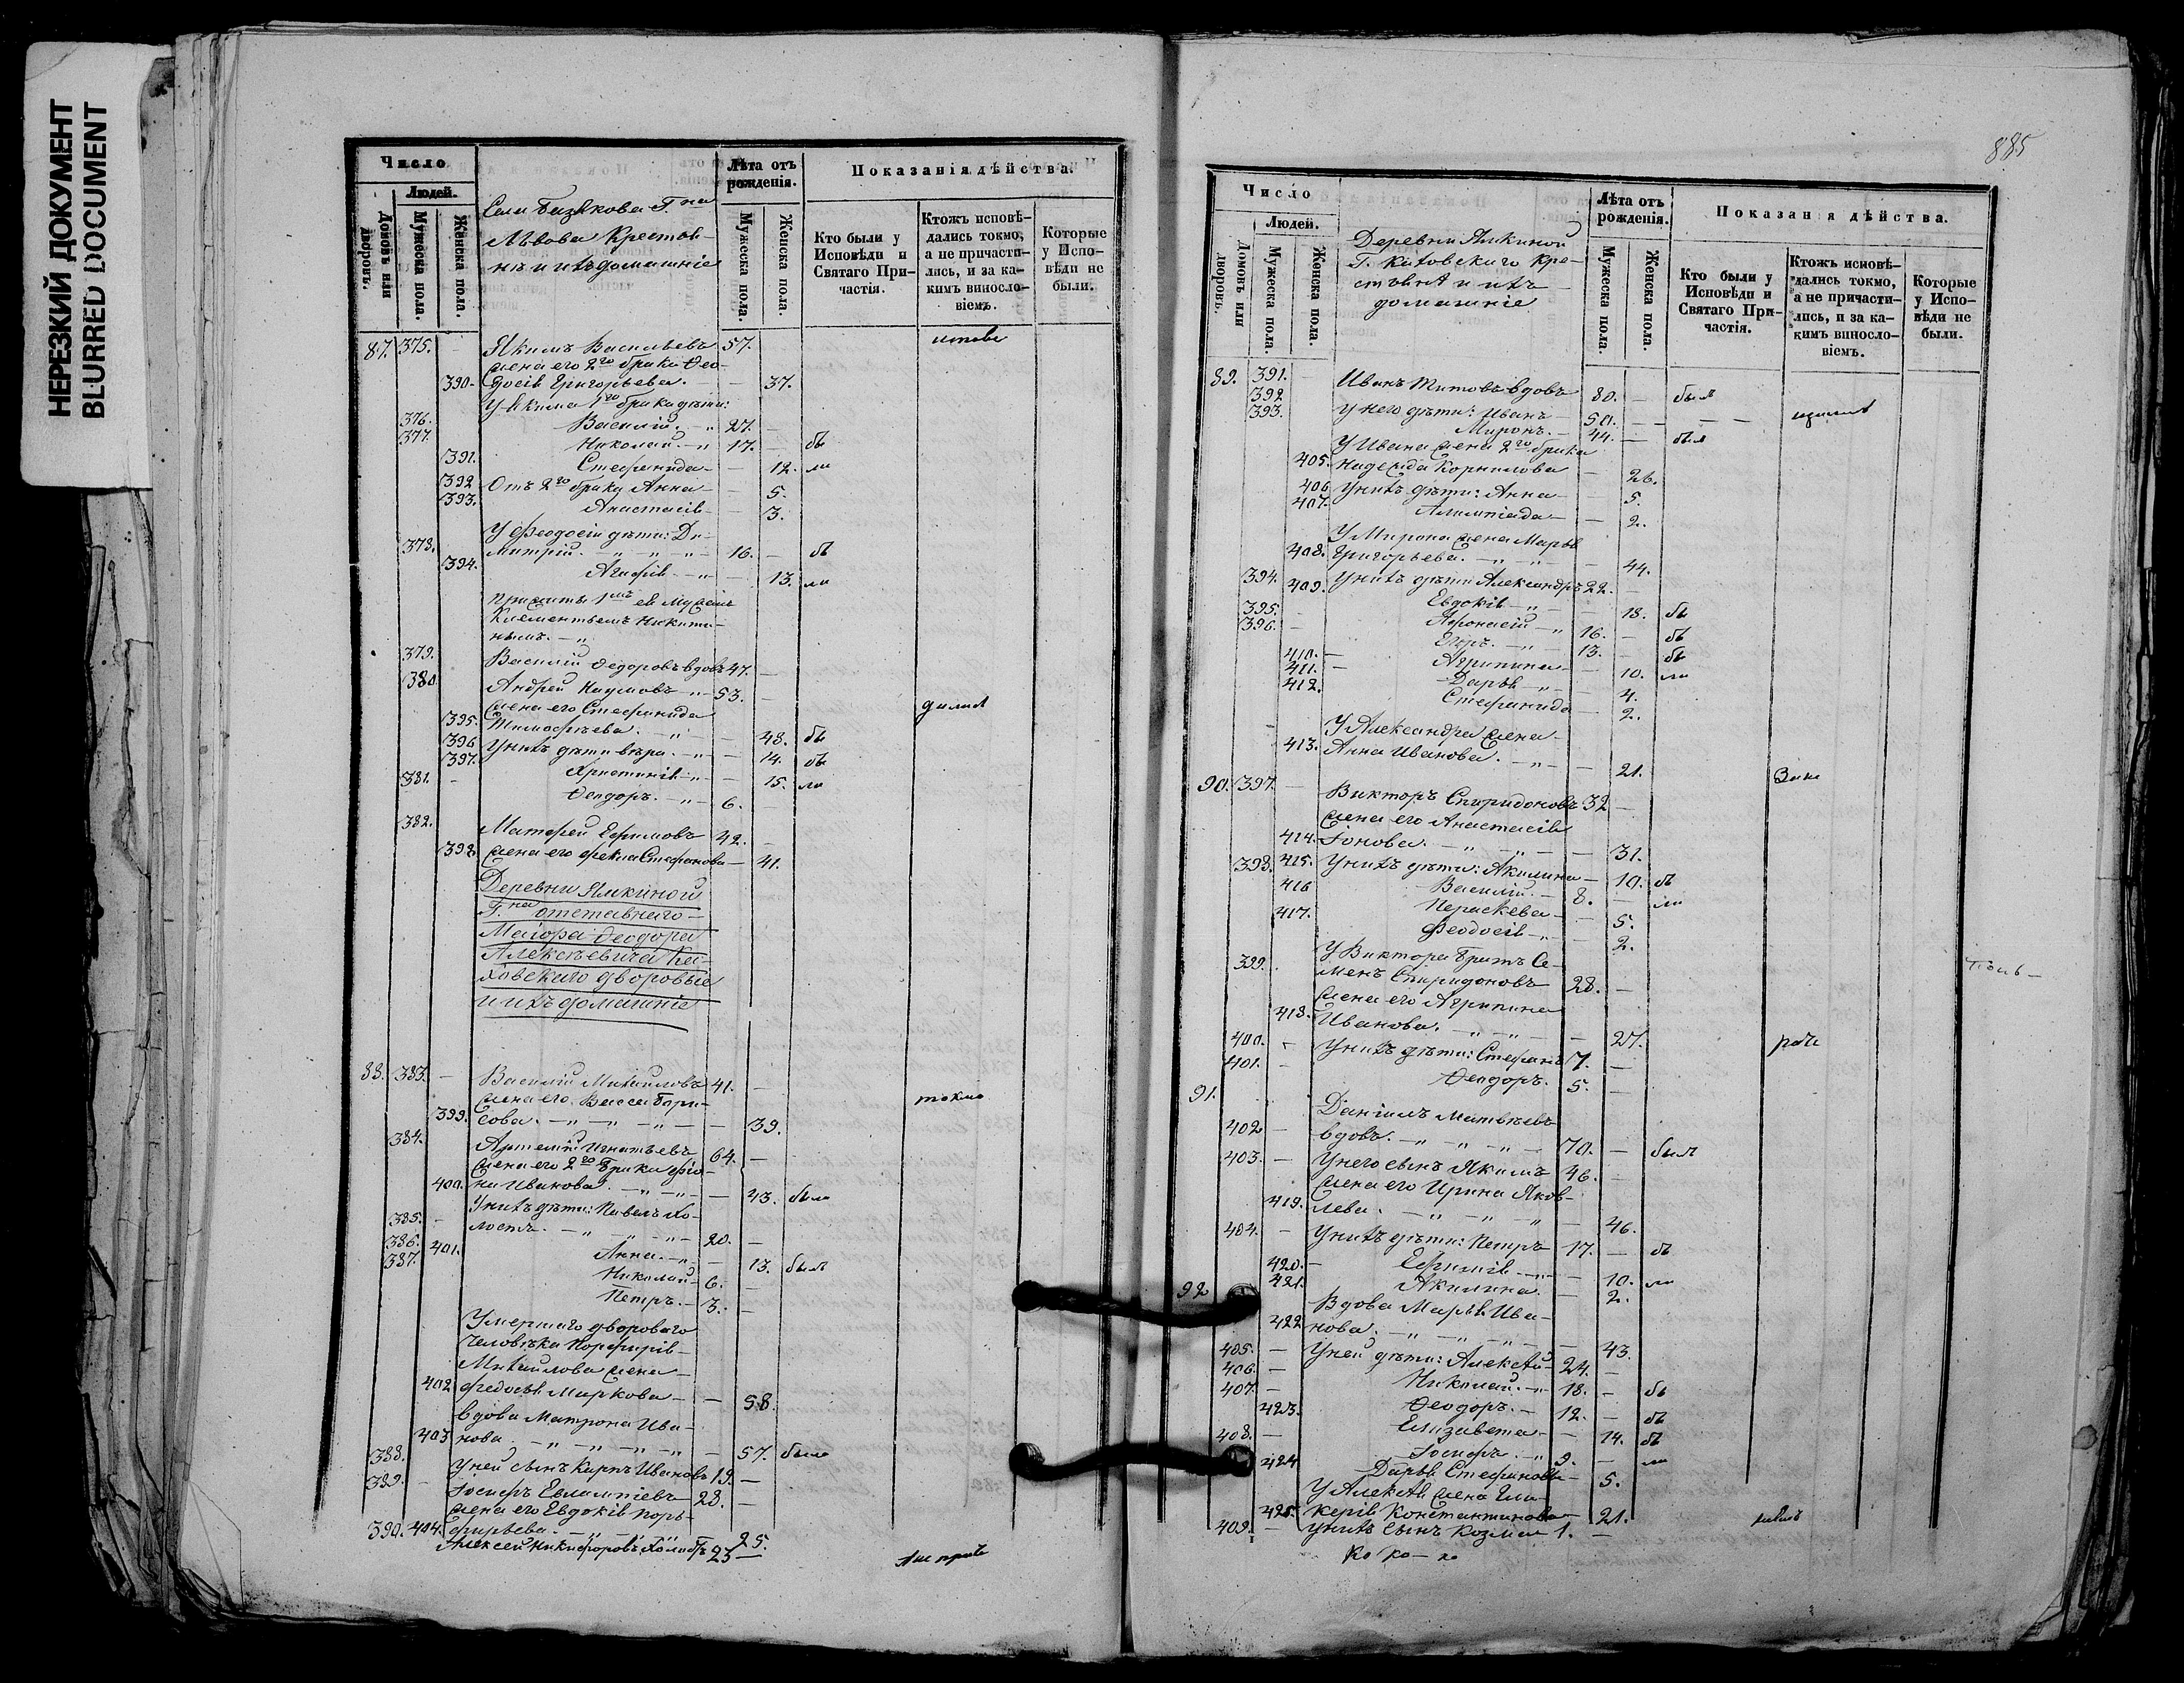 НЕРЕЗКИЙ ДОКУМЕНТ
BLURRED DOCUMENT
Число
Людей.
Домовъ или дворовъ.
Мужеска пола.
Женска пола.
Села Г.на
Львова Крестья-
нъ и ихъ домашніе
Лѣта отъ рожденія.
Мужеска пола.
Женска пола.
Показанія дѣйства.
Кто были у Исповѣди и Святаго Причастія.
Ктожъ исповѣдались токмо, а не причастились, и за какимъ винословіемъ.
Которые у Исповѣди не были.
87. 375. – Якимъ Васильевъ 57. – испове
жена его 2го брака Ѳео-
390. досія Григорьева. – – 37.
У Якима 1го брака дѣти:
376. Василій. – „ 27. –
377. Николай. – „ 17. – бы
391. Стефанида – – 12. ла
392 Отъ 2го брака Анна – – 5.
393. Анастасія – – 3.
У Феодосіи дѣти: Ди-
378. митрій. – „ – „ – „ – 16. – бъ
394. Агафія – „ – 13. ла
прижиты 1мъ ея мужемъ
Климентьемъ Никити-
нымъ. – „
379. Василій Ѳедоровъ вдовъ 47. –
380. Андрей Наумовъ – „ – 53. –
жена его Стефанида дались
395. Тимофѣева. – „ – 48. бы
396 У нихъ дѣти Вѣра. – „ – 14. бы
397. Христинія – „ – 15. ла
381. – Ѳеодоръ. – „ – 6. –
382. Матфей Ефимовъ 42. –
398. жена его Фекла Стефанова – 41.
Деревни Ямкиной
Г.на отставнаго
Маіора Ѳеодора
Алексѣевича Ка-
ховскаго дворовые
и ихъ домашніе
88. 383. – Василій Михайловъ 41. – токмо
жена его Васса Бори-
399. сова. – „ – „ – „ – – 39.
384. Артемій Игнатьевъ 64. –
жена его 2го брака Фіо-
400. на Иванова. – „ – „ – – 43. была
У нихъ дѣти: Павелъ хо-
385. – лостъ. – „ – „ – „ – 20. –
386. 401. Анна. – „ – – 13. была
387. Николай – 6. –
Петръ. – 3. –
Умершаго двороваго
человѣка Порфирія
Михайлова жена
402 Федосья Маркова – – 58.
вдова Матрона Ива-
403 нова. – „ – „ – „ – „ – 57. была
388. У ней сынъ Карпъ Ивановъ 19. –
389. – Іосифъ Евлампіевъ 28. –
жена его Евдокія Пор-
390. 404. фирьева. – „ – „ – „ – 25.
Алексей Никифоровъ холостъ 23 – а не приче
885
Число
Людей.
Домовъ или дворовъ.
Мужеска пола.
Женска пола.
Деревни Ямкиной
Г. Каховскаго кре-
стьянѣ и ихъ
домашніе
Лѣта отъ рожденія.
Мужеска пола.
Женска пола.
Показанія дѣйства.
Кто были у Исповѣди и Святаго Причастія.
Ктожъ исповѣдались токмо, а не причастились, и за какимъ винословіемъ.
Которые у Исповѣди не были.
89. 391. – Иванъ Титовъ вдовъ 80. – былъ
392 У него дѣти: Иванъ – 50. – – –
393. Миронъ. – 44. – былъ
У Ивана жена 2го брака
405. Надежда Корнилова – 26.
406 У нихъ дѣти: Анна – – 5.
407. Алимпіада – – 2.
У Мирона жена Марья
408. Григорьева. – „ – „ – 44.
394. У нихъ дѣти Александръ 22. –
409. Евдокія – „ – 18. бы
395. Афонасій – „ 16. – бъ
396. – Егоръ. – „ – 13. – бы
410. – Агрипина – – 10. ла
411. – Дарья – „ – – 4.
412. Стефанида – 2.
У Александра жена –
413. Анна Иванова. – „ – – 21.
90. 397. – Викторъ Спиридоновъ 32 –
жена его Анастасія
414. Іонова. – „ – „ – – 31.
398. 415. У нихъ дѣти: Акилина – 10. бъ
416 Василій. – 8. – ла
417. Параскева – – 5.
Феодосія – „ – 2.
У Виктора братъ Се-
399. менъ Спиридоновъ 28. –
жена его Агрипина
418. Иванова. – „ – „ – 27.
400. – У нихъ дѣти: Стефанъ 7. –
401. – Ѳеодоръ. 5. –
91. Даніилъ Матвѣевъ
402 – вдовъ. – „ – „ – „ – 70. – былъ
403. – У него сынъ Якимъ 46. –
жена его Ирина Яков-
419. лева. – „ – „ – „ – 46.
404. – У нихъ дѣти: Петръ – 17. – бъ
420. – Ефимія – „ – 10. ла
421. Акилина. – – 2.
92 Вдова Марья Ива-
422 нова. – „ – „ – „ – – 43.
405. – У ней дѣти: Алексѣй – 24. –
406. – Николай – „ 18. – бы
407. – Ѳеодоръ. – 12. – бъ
423. Елизавета – – 14. бъ
408. – Іосифъ. – „ 9. – ла
424 Дарья Стефанова – 5.
У Алексѣя жена Гли-
425. керія Константинова – 21.
409. – У нихъ сынъ Козма – 1. –